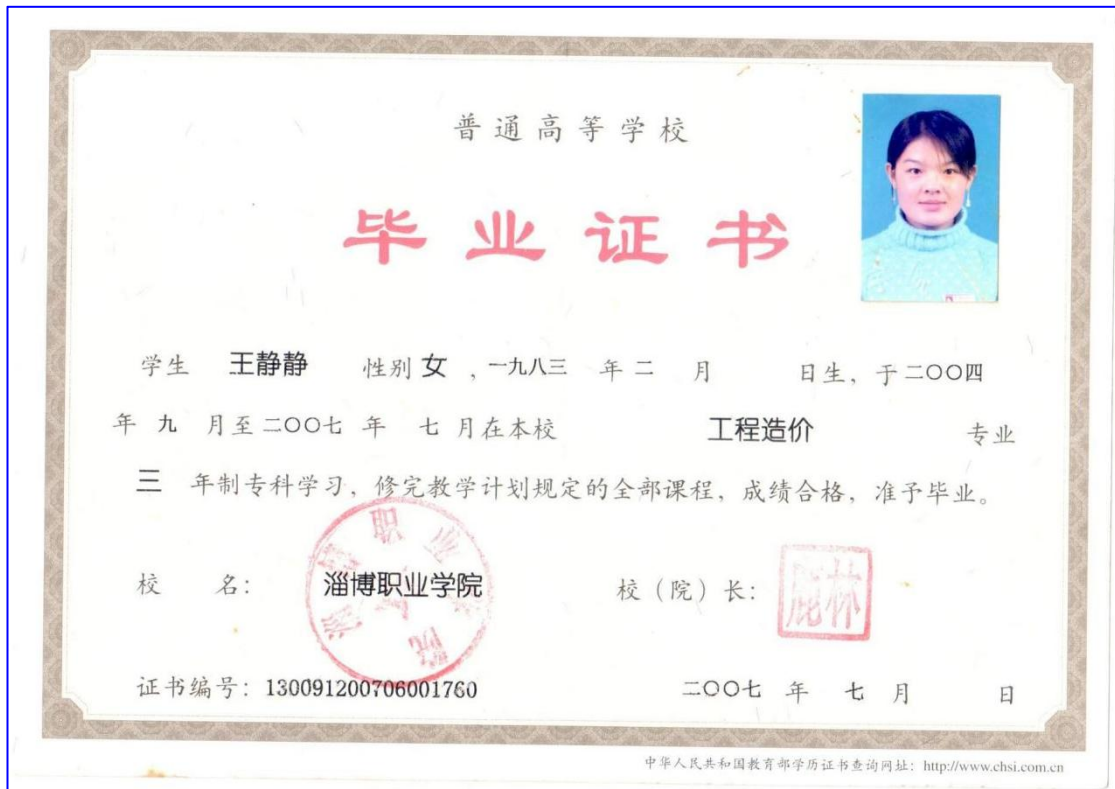 普通高等学校
毕业证书
学生 王静静 性别 女 , 一九八三 年 二 月 日生, 于 二〇〇四
年 九 月至 二〇〇七 年 七 月在本校 工程造价 专业
三 年制专科学习, 修完教学计划规定的全部课程, 成绩合格, 准予毕业。
校 名: 淄博职业学院 校(院)长: 林鹿
证书编号: 130091200706001760 二〇〇七 年 七 月 日
中华人民共和国教育部学历证书查询网址: http://www.chsi.com.cn